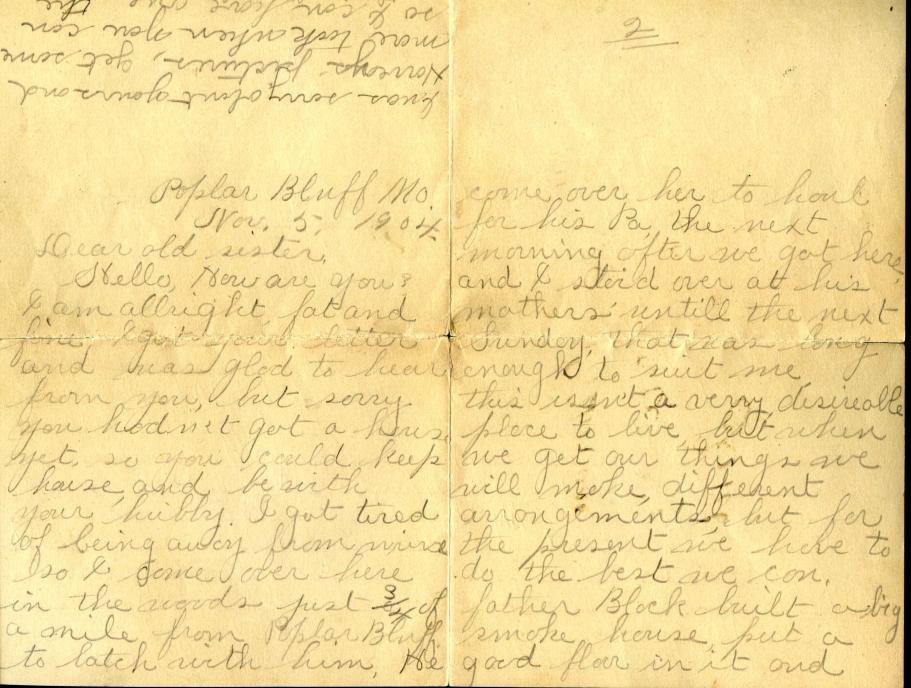 Poplar Bluff Mo.
Nov. 5, 1904.
Dear old sister,
Hello, How are you?
I am allright, fat and
fine I got your letter
and was glad to hear
from you, but sorry
you hadn't got a house
yet, so you could keep
house, and be with
your hubby. I got tired
of being away from mine
so I come over here
in the woods just 3/4 of
a mile from Poplar Bluff
to batch with him, He
2
come over her to haul
for his Pa, the next
morning after we got here,
and I staid over at his
mothers untill the next
Sunday, that was long
enough to suit me
this isent a verry desireable
place to live, but when
we get our things we
will make different
arrangements, but for
the present we have to
do the best we can.
father Block built a big
smoke house put a
good floor in it and
I was sorry about yours and
Harveys pictures, get some
more took when you can
so I can have one